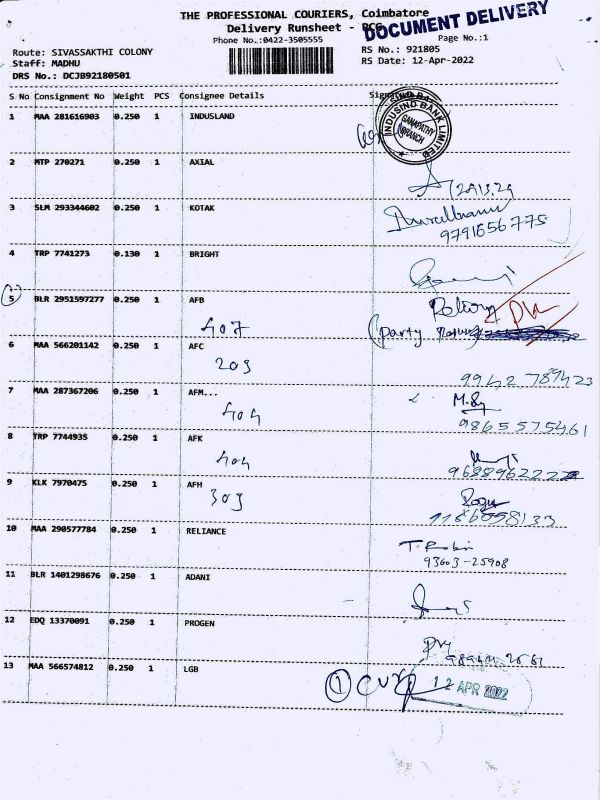 THE PROFESSIONAL COURIERS, Coimbatore
Delivery Runsheet -
DOCUMENT DELIVERY
Phone No.:0422-3505555
Page No.:1
Route: SIVASSAKTHI COLONY
RS No.: 921805
Staff: MADHU
RS Date: 12-Apr-2022
DRS No.: DCJB92180501
S No Consignment No Weight PCS Consignee Details
1 MAA 281616903 0.250 1 INDUSLAND
INDUSIND BANK LIMITED
GANAPATHY BRANCH
2 MTP 270271 0.250 1 AXIAL
3 SLM 293344602 0.250 1 KOTAK
9791656775
4 TRP 7741273 0.130 1 BRIGHT
5 BLR 2951597277 0.250 1 AFB
407
(party
6 MAA 566201142 0.250 1 AFC
203
9942 789423
7 MAA 287367206 0.250 1 AFM...
404
9865575461
8 TRP 7744935 0.250 1 AFK
404
9 KLK 7970475 0.250 1 AFH
303
10 MAA 290577784 0.250 1 RELIANCE
T. Robin
93603-25908
11 BLR 1401298676 0.250 1 ADANI
12 EDQ 13370091 0.250 1 PROGEN
13 MAA 566574812 0.250 1 LGB
1
12 APR 2022